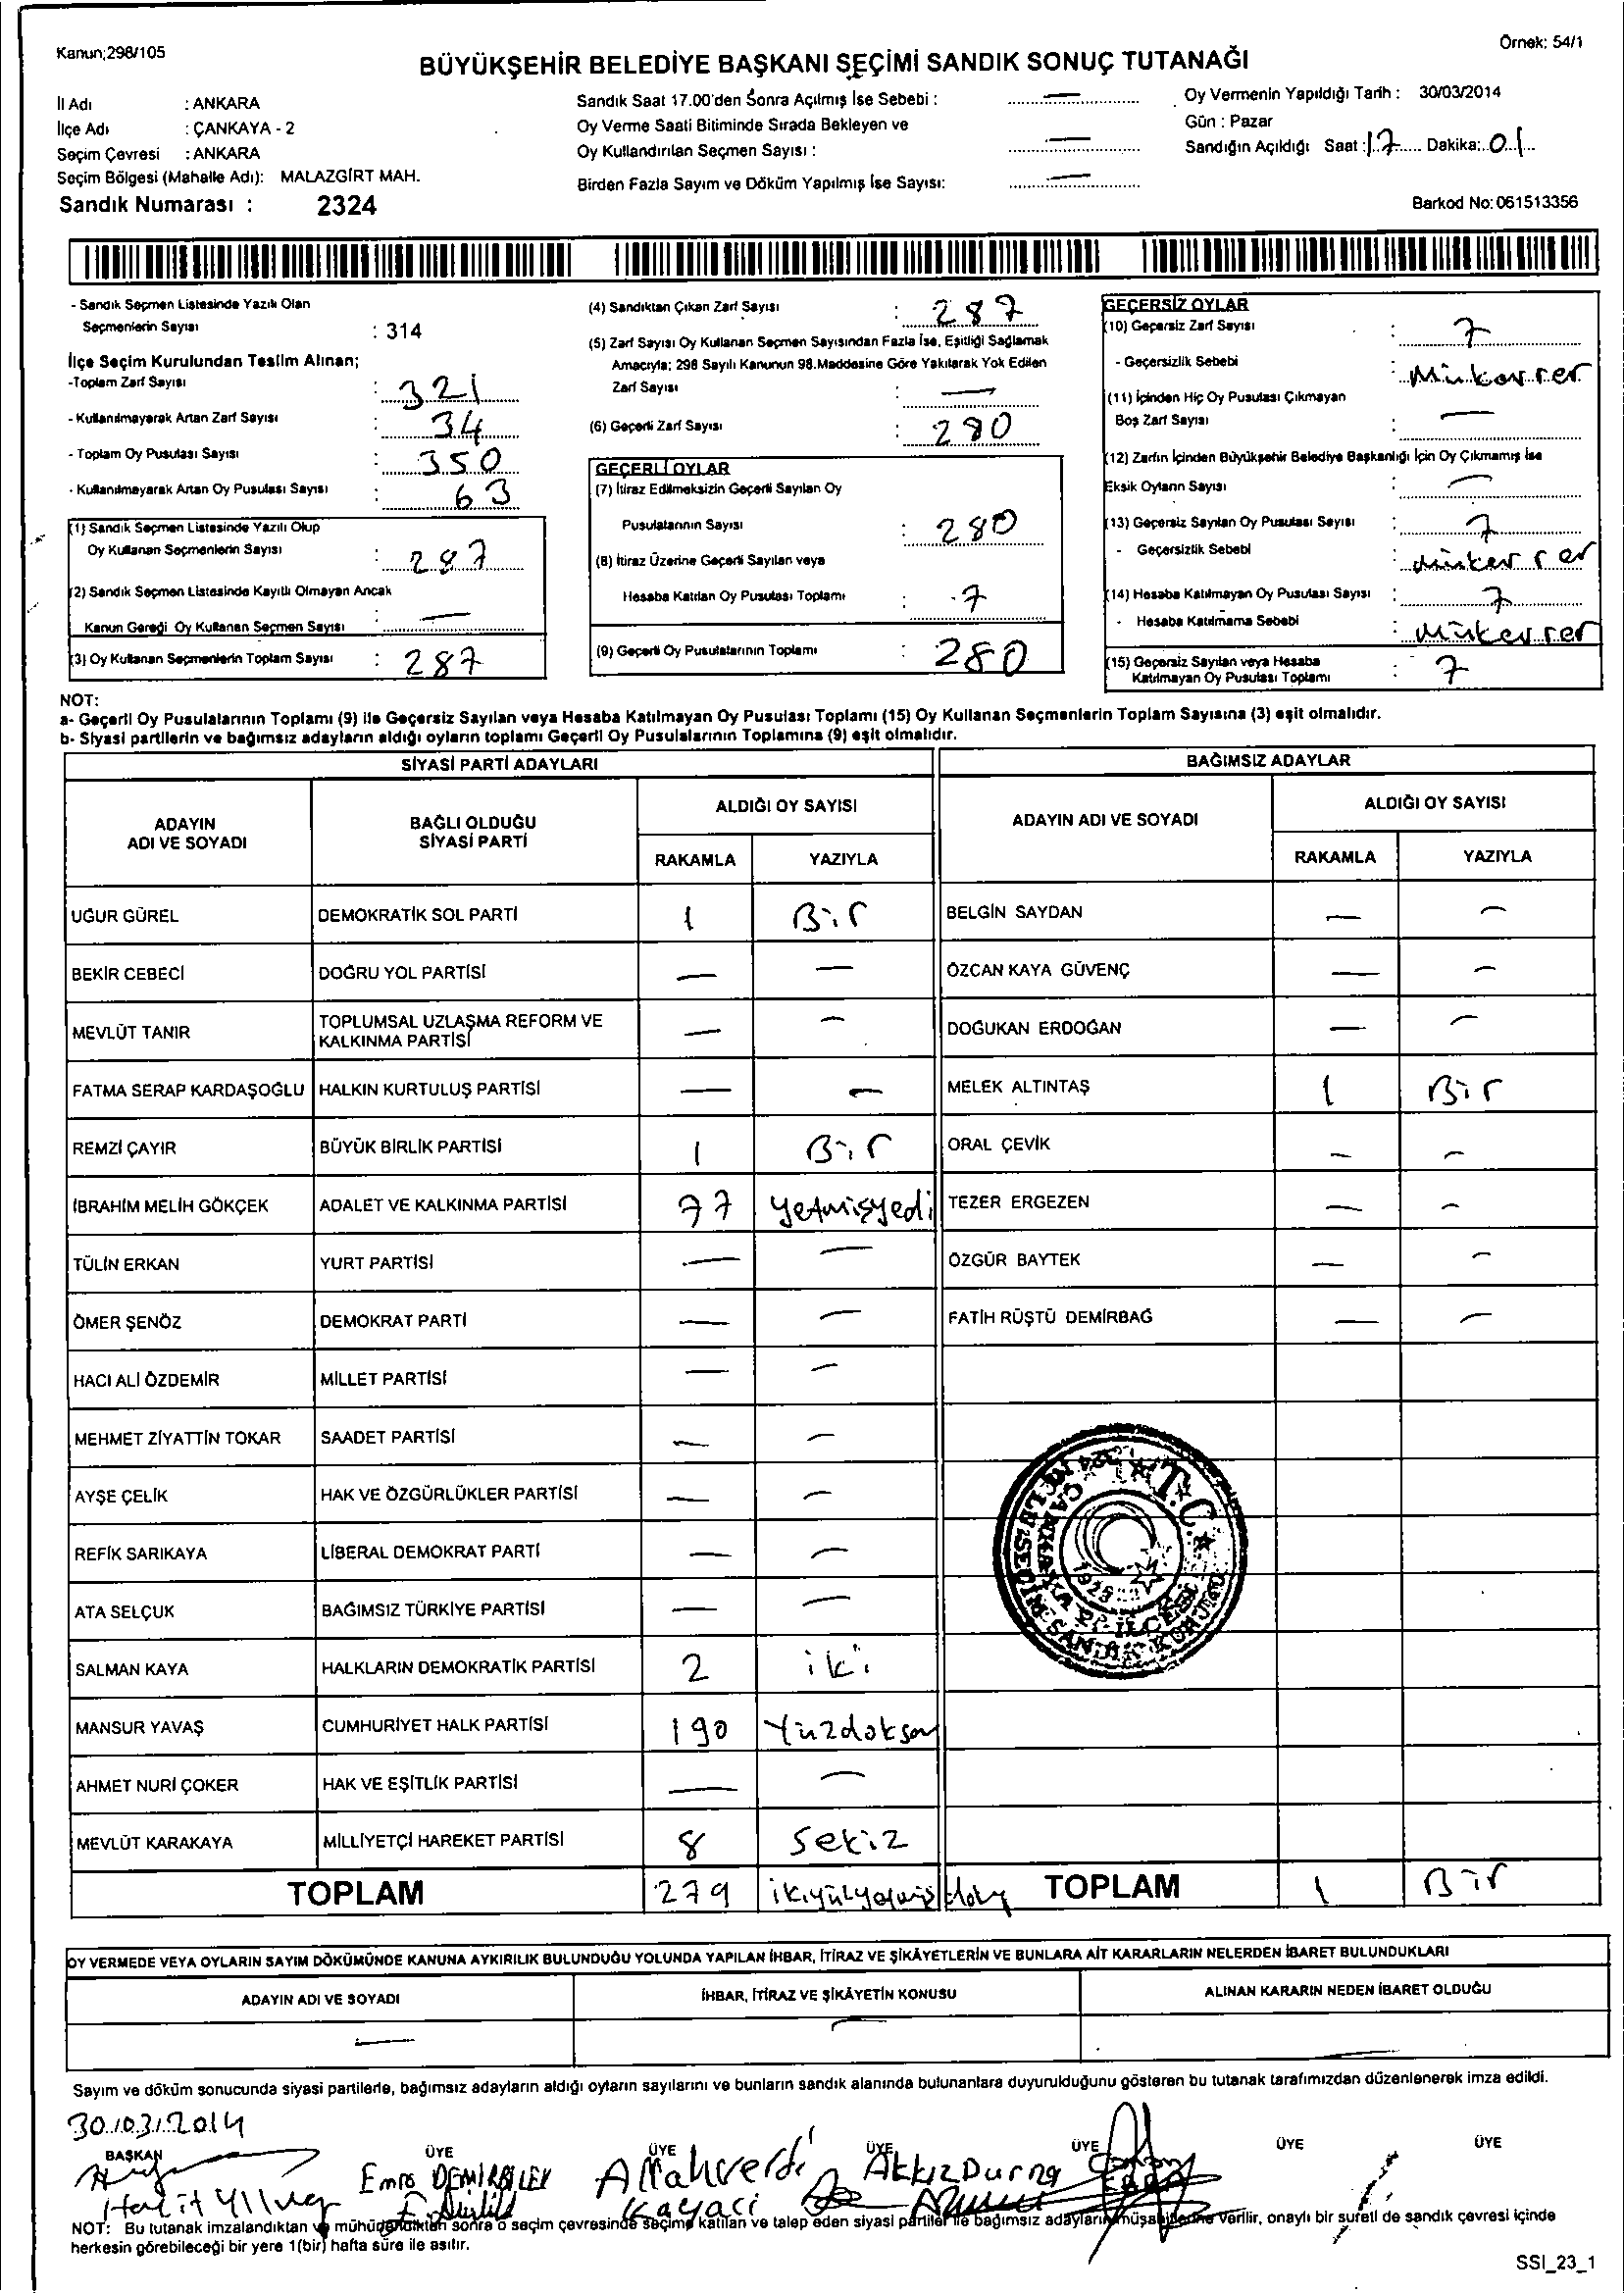 Kanun;298/105
Örnek: 54/1
BÜYÜKŞEHİR BELEDİYE BAŞKANI SEÇİMİ SANDIK SONUÇ TUTANAĞI
İl Adı : ANKARA
İlçe Adı : ÇANKAYA - 2
Seçim Çevresi : ANKARA
Seçim Bölgesi (Mahalle Adı): MALAZGİRT MAH.
Sandık Numarası : 2324
Sandık Saat 17.00'den Sonra Açılmış İse Sebebi : —
Oy Verme Saati Bitiminde Sırada Bekleyen ve
Oy Kullandırılan Seçmen Sayısı : —
Birden Fazla Sayım ve Döküm Yapılmış İse Sayısı: —
Oy Vermenin Yapıldığı Tarih : 30/03/2014
Gün : Pazar
Sandığın Açıldığı Saat : 17 Dakika: 01
Barkod No: 061513356
- Sandık Seçmen Listesinde Yazılı Olan
Seçmenlerin Sayısı : 314
İlçe Seçim Kurulundan Teslim Alınan;
-Toplam Zarf Sayısı : 321
- Kullanılmayarak Artan Zarf Sayısı : 34
- Toplam Oy Pusulası Sayısı : 350
- Kullanılmayarak Artan Oy Pusulası Sayısı : 63
(1) Sandık Seçmen Listesinde Yazılı Olup
Oy Kullanan Seçmenlerin Sayısı : 287
(2) Sandık Seçmen Listesinde Kayıtlı Olmayan Ancak
Kanun Gereği Oy Kullanan Seçmen Sayısı : —
(3) Oy Kullanan Seçmenlerin Toplam Sayısı : 287
(4) Sandıktan Çıkan Zarf Sayısı : 287
(5) Zarf Sayısı Oy Kullanan Seçmen Sayısından Fazla İse, Eşitliği Sağlamak
Amacıyla; 298 Sayılı Kanunun 98.Maddesine Göre Yakılarak Yok Edilen
Zarf Sayısı : —
(6) Geçerli Zarf Sayısı : 280
GEÇERLİ OYLAR
(7) İtiraz Edilmeksizin Geçerli Sayılan Oy
Pusulalarının Sayısı : 280
(8) İtiraz Üzerine Geçerli Sayılan veya
Hesaba Katılan Oy Pusulası Toplamı : -7
(9) Geçerli Oy Pusulalarının Toplamı : 280
GEÇERSİZ OYLAR
(10) Geçersiz Zarf Sayısı : 7
- Geçersizlik Sebebi : Mükerrer
(11) İçinden Hiç Oy Pusulası Çıkmayan
Boş Zarf Sayısı : —
(12) Zarfın İçinden Büyükşehir Belediye Başkanlığı İçin Oy Çıkmamış İse
Eksik Oyların Sayısı : —
(13) Geçersiz Sayılan Oy Pusulası Sayısı : 7
- Geçersizlik Sebebi : mükerrer
(14) Hesaba Katılmayan Oy Pusulası Sayısı : 7
- Hesaba Katılmama Sebebi : mükerrer
(15) Geçersiz Sayılan veya Hesaba
Katılmayan Oy Pusulası Toplamı : 7
NOT:
a- Geçerli Oy Pusulalarının Toplamı (9) ile Geçersiz Sayılan veya Hesaba Katılmayan Oy Pusulası Toplamı (15) Oy Kullanan Seçmenlerin Toplam Sayısına (3) eşit olmalıdır.
b- Siyasi partilerin ve bağımsız adayların aldığı oyların toplamı Geçerli Oy Pusulalarının Toplamına (9) eşit olmalıdır.
SİYASİ PARTİ ADAYLARI BAĞIMSIZ ADAYLAR
ADAYIN ADI VE SOYADI BAĞLI OLDUĞU SİYASİ PARTİ ALDIĞI OY SAYISI ADAYIN ADI VE SOYADI ALDIĞI OY SAYISI
RAKAMLA YAZIYLA RAKAMLA YAZIYLA
UĞUR GÜREL DEMOKRATİK SOL PARTİ 1 Bir BELGİN SAYDAN — —
BEKİR CEBECİ DOĞRU YOL PARTİSİ — — ÖZCAN KAYA GÜVENÇ — —
MEVLÜT TANIR TOPLUMSAL UZLAŞMA REFORM VE KALKINMA PARTİSİ — — DOĞUKAN ERDOĞAN — —
FATMA SERAP KARDAŞOĞLU HALKIN KURTULUŞ PARTİSİ — — MELEK ALTINTAŞ 1 Bir
REMZİ ÇAYIR BÜYÜK BİRLİK PARTİSİ 1 Bir ORAL ÇEVİK — —
İBRAHİM MELİH GÖKÇEK ADALET VE KALKINMA PARTİSİ 77 yetmişyedi TEZER ERGEZEN — —
TÜLİN ERKAN YURT PARTİSİ — — ÖZGÜR BAYTEK — —
ÖMER ŞENÖZ DEMOKRAT PARTİ — — FATİH RÜŞTÜ DEMİRBAĞ — —
HACI ALİ ÖZDEMİR MİLLET PARTİSİ — —
MEHMET ZİYATTİN TOKAR SAADET PARTİSİ — —
AYŞE ÇELİK HAK VE ÖZGÜRLÜKLER PARTİSİ — —
REFİK SARIKAYA LİBERAL DEMOKRAT PARTİ — —
ATA SELÇUK BAĞIMSIZ TÜRKİYE PARTİSİ — —
SALMAN KAYA HALKLARIN DEMOKRATİK PARTİSİ 2 iki
MANSUR YAVAŞ CUMHURİYET HALK PARTİSİ 190 Yüzdoksan
AHMET NURİ ÇOKER HAK VE EŞİTLİK PARTİSİ — —
MEVLÜT KARAKAYA MİLLİYETÇİ HAREKET PARTİSİ 8 Sekiz
TOPLAM 279 TOPLAM 1 Bir
T.C. ÇANKAYA 2. İLÇE SEÇİM SANDIK KURULU
OY VERMEDE VEYA OYLARIN SAYIM DÖKÜMÜNDE KANUNA AYKIRILIK BULUNDUĞU YOLUNDA YAPILAN İHBAR, İTİRAZ VE ŞİKÂYETLERİN VE BUNLARA AİT KARARLARIN NELERDEN İBARET BULUNDUKLARI
ADAYIN ADI VE SOYADI İHBAR, İTİRAZ VE ŞİKÂYETİN KONUSU ALINAN KARARIN NEDEN İBARET OLDUĞU
— — —
Sayım ve döküm sonucunda siyasi partilerle, bağımsız adayların aldığı oyların sayılarını ve bunların sandık alanında bulunanlara duyurulduğunu gösteren bu tutanak tarafımızdan düzenlenerek imza edildi.
30/03/2014
BAŞKAN ÜYE ÜYE ÜYE ÜYE ÜYE ÜYE
Emre DEMİRBİLEK Allahverdi Akkız Durna
Halit Yılmaz Kayacı
NOT: Bu tutanak imzalandıktan ve mühürlendikten sonra o seçim çevresinde seçime katılan ve talep eden siyasi partiler ile bağımsız adayların müşahitlerine verilir, onaylı bir sureti de sandık çevresi içinde
herkesin görebileceği bir yere 1(bir) hafta süre ile asılır.
SSI_23_1